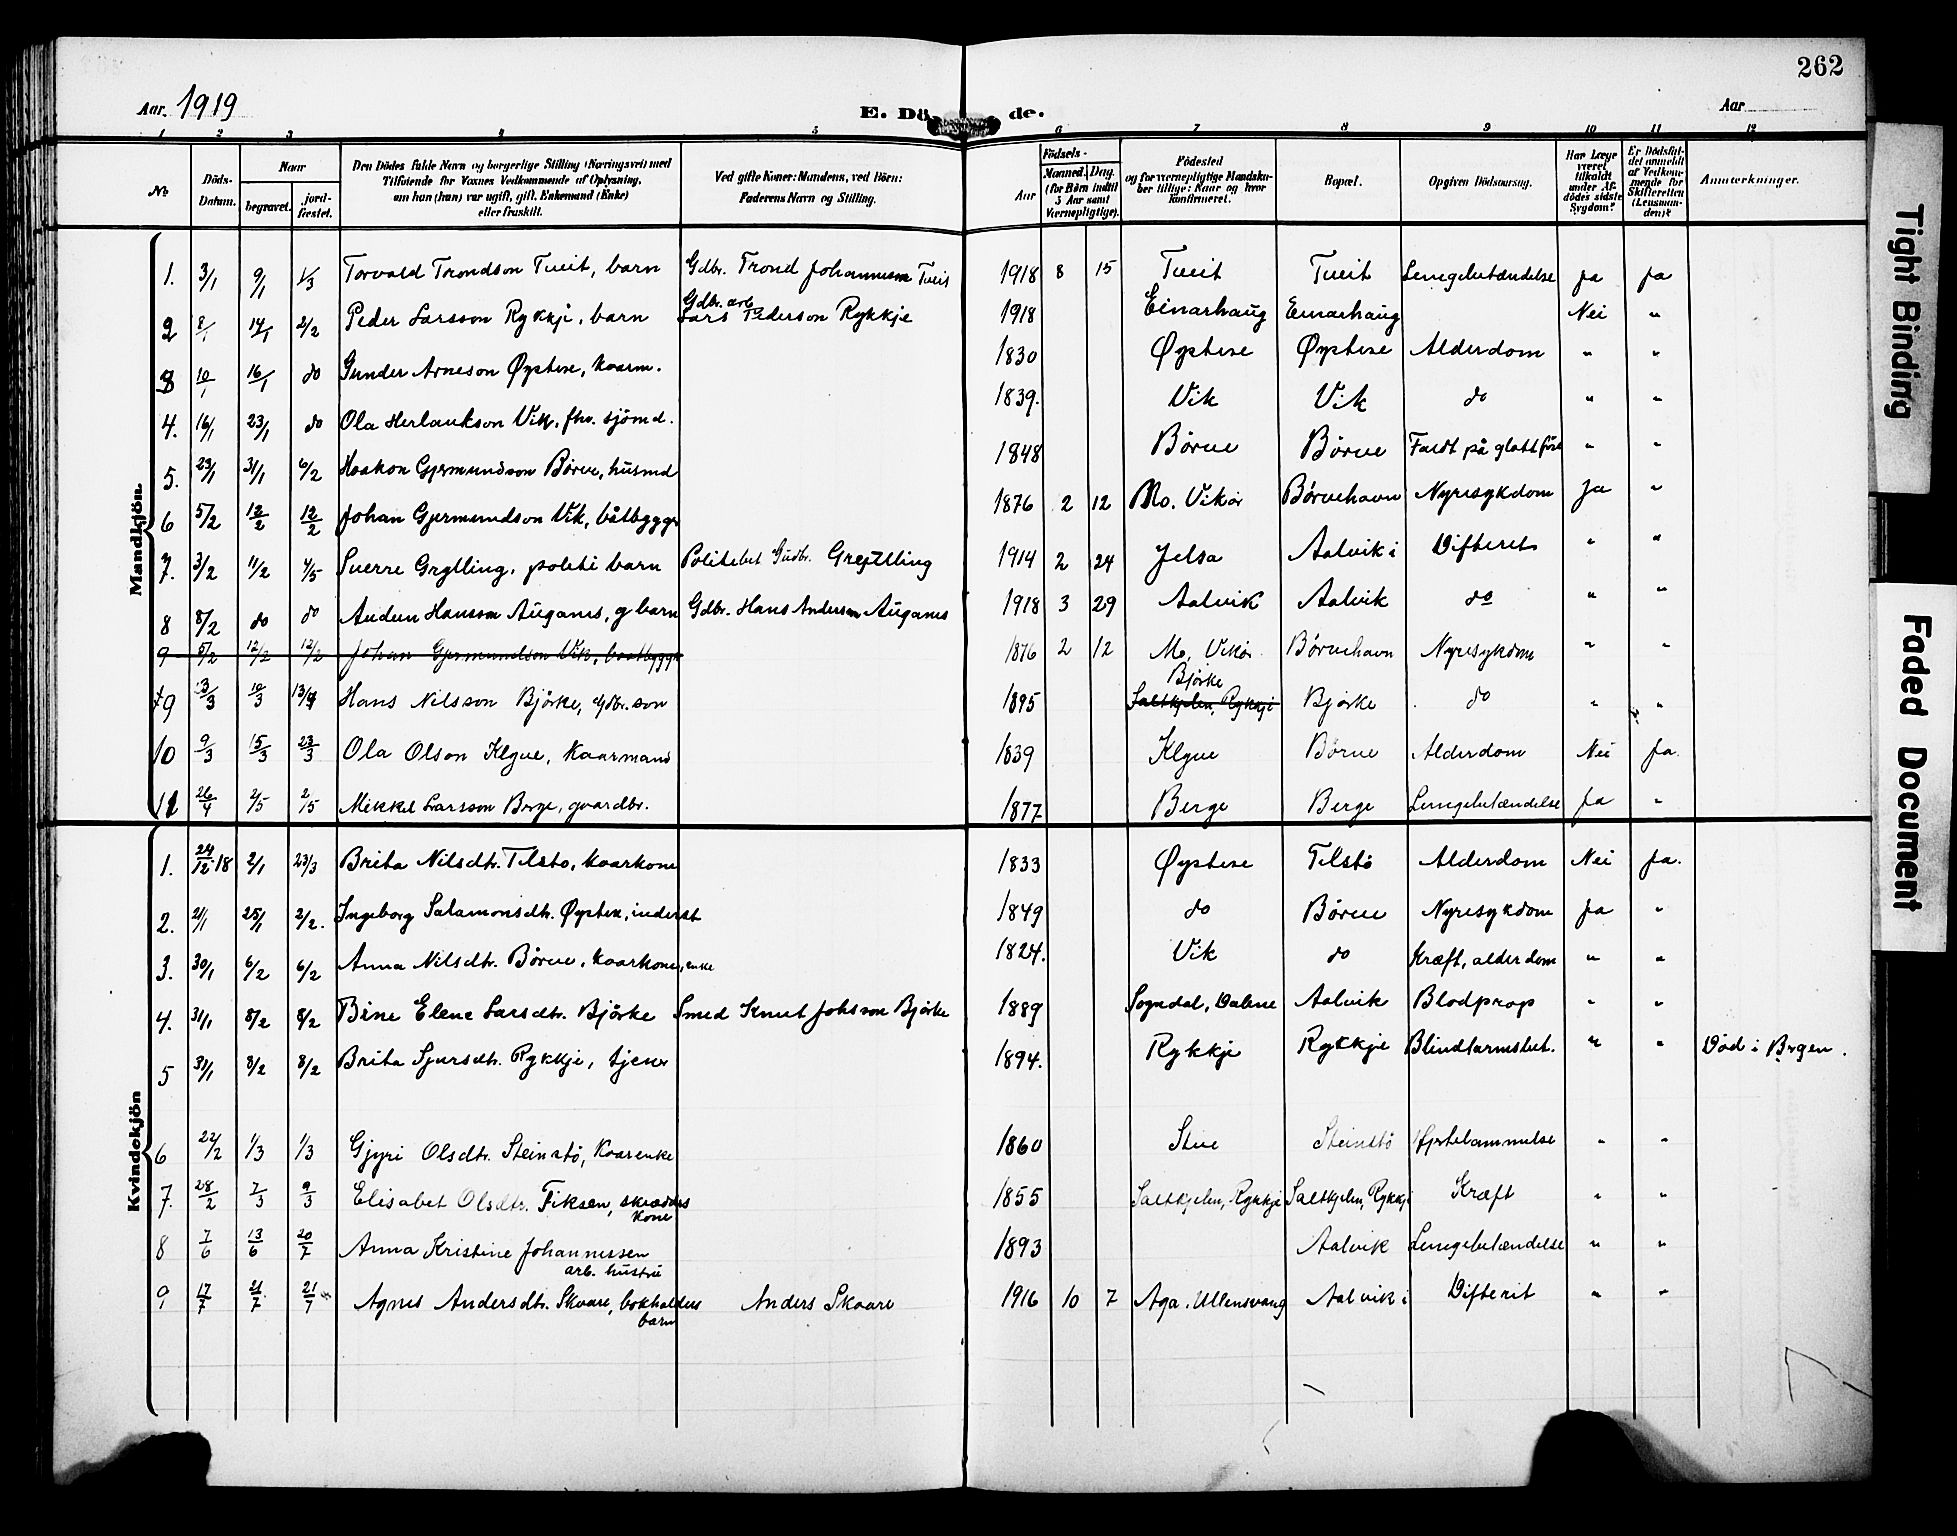 262
Aar. 1919
E. Dö de.
Aar
1 2 3 4 5 6 7 8 9 10 11 12
No
Döds-Datum.
Naar
begravet.
jord-fæstet.
Den Dödes fulde Navn og borgerlige Stilling (Næringsvei) med
Tilföiende for Voxnes Vedkommende af Oplysning,
om han (hun) var ugift, gift, Enkemand (Enke)
eller fraskilt.
Ved gifte Koner: Mandens, ved Börn:
Faderens Navn og Stilling.
Födsels-
Aar
Maaned. Dag.
(for Börn indtil
5 Aar samt
Værnepligtige).
Födested
og for værnepligtige Mandsku-
ber tillige: Naar og hvor
konfirmeret.
Bopæl.
Opgiven Dödsaarsag.
Har Læge
været
tilkaldt
under Af-
dödes sidste
Sygdom?
Er Dödsfal-
det anmeldt
af Vedkom-
mende for
Skifteretten
(Lensman-
den)?
Anmærkninger.
Mandkjön.
1. 3/1 9/1 1/3 Torvald Trondson Tveit, barn Gdbr. Trond Johannesson Tveit 1918 8 15 Tveit Tveit Lungebetændelse Ja Ja
2 8/1 14/1 2/2 Peder Larsson Rykkje, barn Gdbr. arb Lars Pederson Rykkje 1918 Einarhaug Einarhaug Nei "
3 10/1 16/1 do Gunder Arneson Øystese, kaarm. 1830 Øystese Øystese Alderdom " "
4. 16/1 23/1 do Ola Herlaukson Vik, fhv. sjömd. 1839. Vik Vik do " "
5. 23/1 31/1 6/2 Haakon Gjermundson Börve, husmd 1848 Börve Börve Faldt på glatt före " "
6 5/2 12/2 12/2 Johan Gjermundson Vik, båtbyggr 1876 2 12 Mo, Vikör Börvehavn Nyresykdom Ja "
7. 3/2 11/2 4/5 Sverre Grytling, politi barn Politibet Gudbr. Greytling 1914 2 24 Jelsa Aalvik i Difterit " "
8 8/2 do do Audun Hansson Auganes, g barn Gdbr. Hans Anderson Auganes 1918 3 29 Aalvik Aalvik do " "
9 5/2 12/2 12/2 Johan Gjermundson Vik, baatbyggr 1876 2 12 Mo, Vikör Börvehavn Nyresykdom " "
9 3/3 10/3 13/4 Hans Nilsson Björke, Gdbr. son 1895 Björke Saltkjelen, Rykkje Björke do " "
10 9/3 15/3 23/3 Ola Olson Klyve, Kaarmand 1839 Klyve Börve Alderdom Nei Ja.
11 26/4 2/5 2/5 Mikkel Larsson Berge, gaardbr. 1877 Berge Berge Lungebetændelse Ja "
Kvindekjön
1. 24/12 18 2/1 23/3 Brita Nilsdtr. Tilstö, kaarkone 1833 Øystese Tilstö Alderdom Nei Ja.
2. 21/1 25/1 2/2. Ingeborg Salamonsdtr. Øystese, inderst 1849 do Börve Nyresykdom Ja "
3. 30/1 6/2 6/2 Anna Nilsdtr. Börve, kaarkone, enke 1824. Vik do Kræft, alderdom " "
4. 31/1 8/2 8/2 Bine Elene Larsdtr. Björke Smed Knut Johsson Björke 1889 Sogndal, Dalene Aalvik Blodprop " "
5 31/1 8/2 8/2 Brita Sjursdtr. Rykkje, tjener 1894. Rykkje Rykkje Blindtarmsbet. " " Död i Bergen.
6 22/2 1/3 1/3 Gjyri Olsdtr. Steinstö, Kaarenke 1860 Stue Steinstö Hjertelammelse " "
7. 28/2 7/3 9/3 Elisabet Olsdtr. Fiksen, skrædders kone 1855 Saltkjelen, Rykkje Saltkjelen, Rykkje Kræft " "
8 7/6 13/6 20/7 Anna Kristine Johannessen arb. hustru 1893 Aalvik Lungebetændelse " "
9 17/7 21/7 21/7 Agnes Andersdtr. Skaare, bokholders barn Anders Skaare 1916 10 7 Aga, Ullensvang Aalvik i Difterit " "
Tight Binding
Faded Document